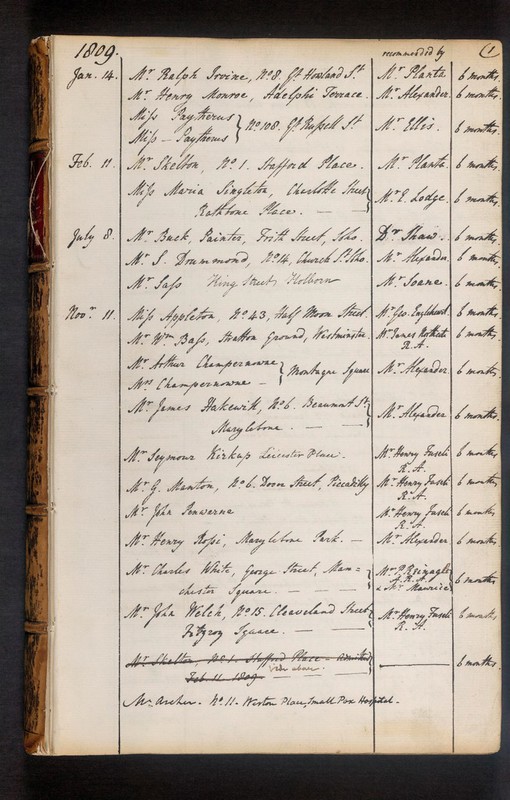 1809. recommended by (1
Jan. 14. Mr Ralph Irvine, No 8. Gt Howland St Mr Planta 6 months.
Mr Henry Monroe, Adelphi Terrace. Mr Alexander. 6 months.
Miss Paytherus
Miss — Paytherus } No 108. Gt Russell St Mr Ellis. 6 months.
Feb. 11. Mr Skelton, No 1. Stafford Place. Mr Planta 6 months.
Miss Maria Singleton, Charlotte Street
Rathbone Place. — — } Mr E. Lodge. 6 months.
July 8. Mr Buck, Painter, Frith Street, Soho. Dr Shaw. 6 months.
Mr S. Drummond, No 14, Church St. Soho. Mr Alexander. 6 months.
Mr Sass King Street Holborn Mr Soane. 6 months.
Novr. 11. Miss Appleton, No 43, Half Moon Street. Mr Geo. Engleheart 6 months.
Mr Wm Bass, Strutton Ground, Westminster. Mr James Northcote R.A. 6 months.
Mr Arthur Champernowne
Mrs Champernowne — } Montague Square Mr Alexander. 6 months.
Mr James Hakewill, No 6. Beaumont St.
Marylebone. — — } Mr Alexander 6 months.
Mr Seymour Kirkup Leicester Place. Mr Henry Fuseli R.A. 6 months
Mr G. Mawton, No 6. Dover Street, Piccadilly Mr Henry Fuseli R.A. 6 months
Mr John Penwarne Mr Henry Fuseli R.A. 6 months
Mr Henry Rossi, Marylebone Park. — Mr Alexander 6 months.
Mr Charles White, George Street, Man=
chester Square. — — — } Mr P. Reinagle A.R.A. & Mr Maurice 6 months.
Mr John Welch, No 15. Cleaveland Street
Fitzroy Square. — — } Mr Henry Fuseli R.A. 6 months
Mr Skelton, No 1. Stafford Place - admitted
Feb 11 1809 Vide above. — — 6 months.
Mr Archer. No 11. Weston Place, Small Pox Hospital.